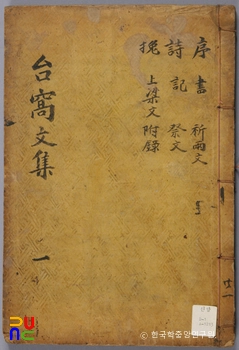 序 書 祈雨文
詩 記 祭文
挽 上梁文 附錄
台窩文集 一
© 한국학중앙연구원